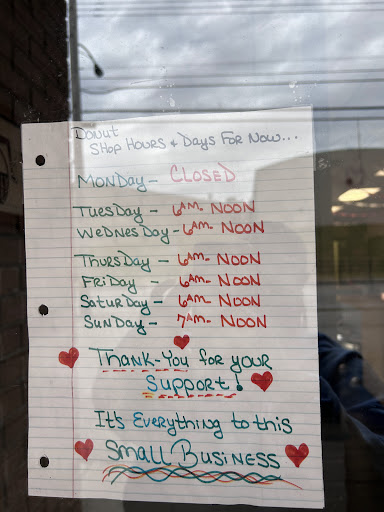 Donut
Shop Hours & Days For Now...
Monday - Closed
Tuesday - 6AM- Noon
Wednesday - 6AM- Noon
Thursday - 6AM- Noon
Friday - 6AM- Noon
Saturday - 6AM- Noon
Sunday - 7AM- Noon
Thank-You for your
Support!
It's Everything to this
Small Business